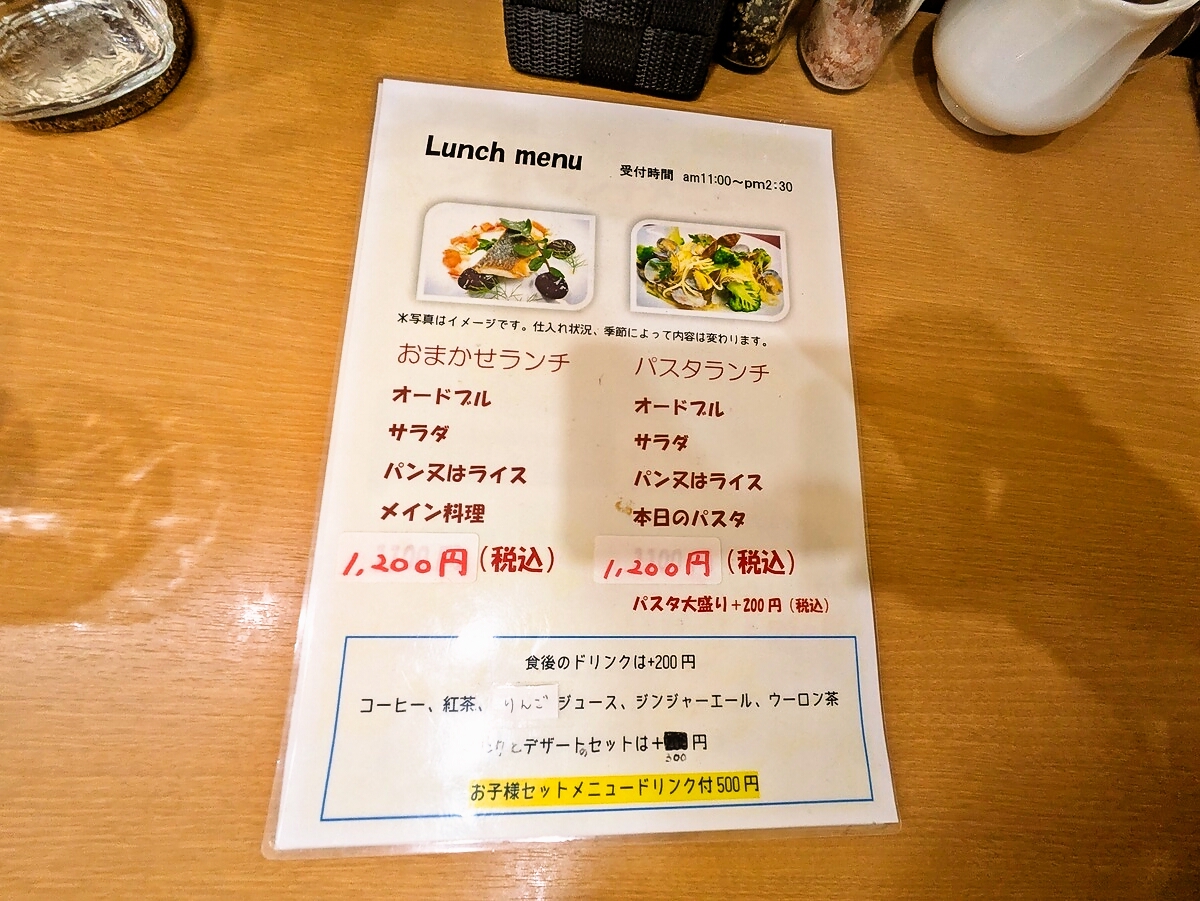 Lunch menu
受付時間 am11:00～pm2:30
※写真はイメージです。仕入れ状況、季節によって内容は変わります。
おまかせランチ
オードブル
サラダ
パン又はライス
メイン料理
1,200円(税込)
パスタランチ
オードブル
サラダ
パン又はライス
本日のパスタ
1,200円(税込)
パスタ大盛り+200円(税込)
食後のドリンクは+200円
コーヒー、紅茶、りんごジュース、ジンジャーエール、ウーロン茶
クとデザートのセットは+300円
お子様セットメニュードリンク付500円